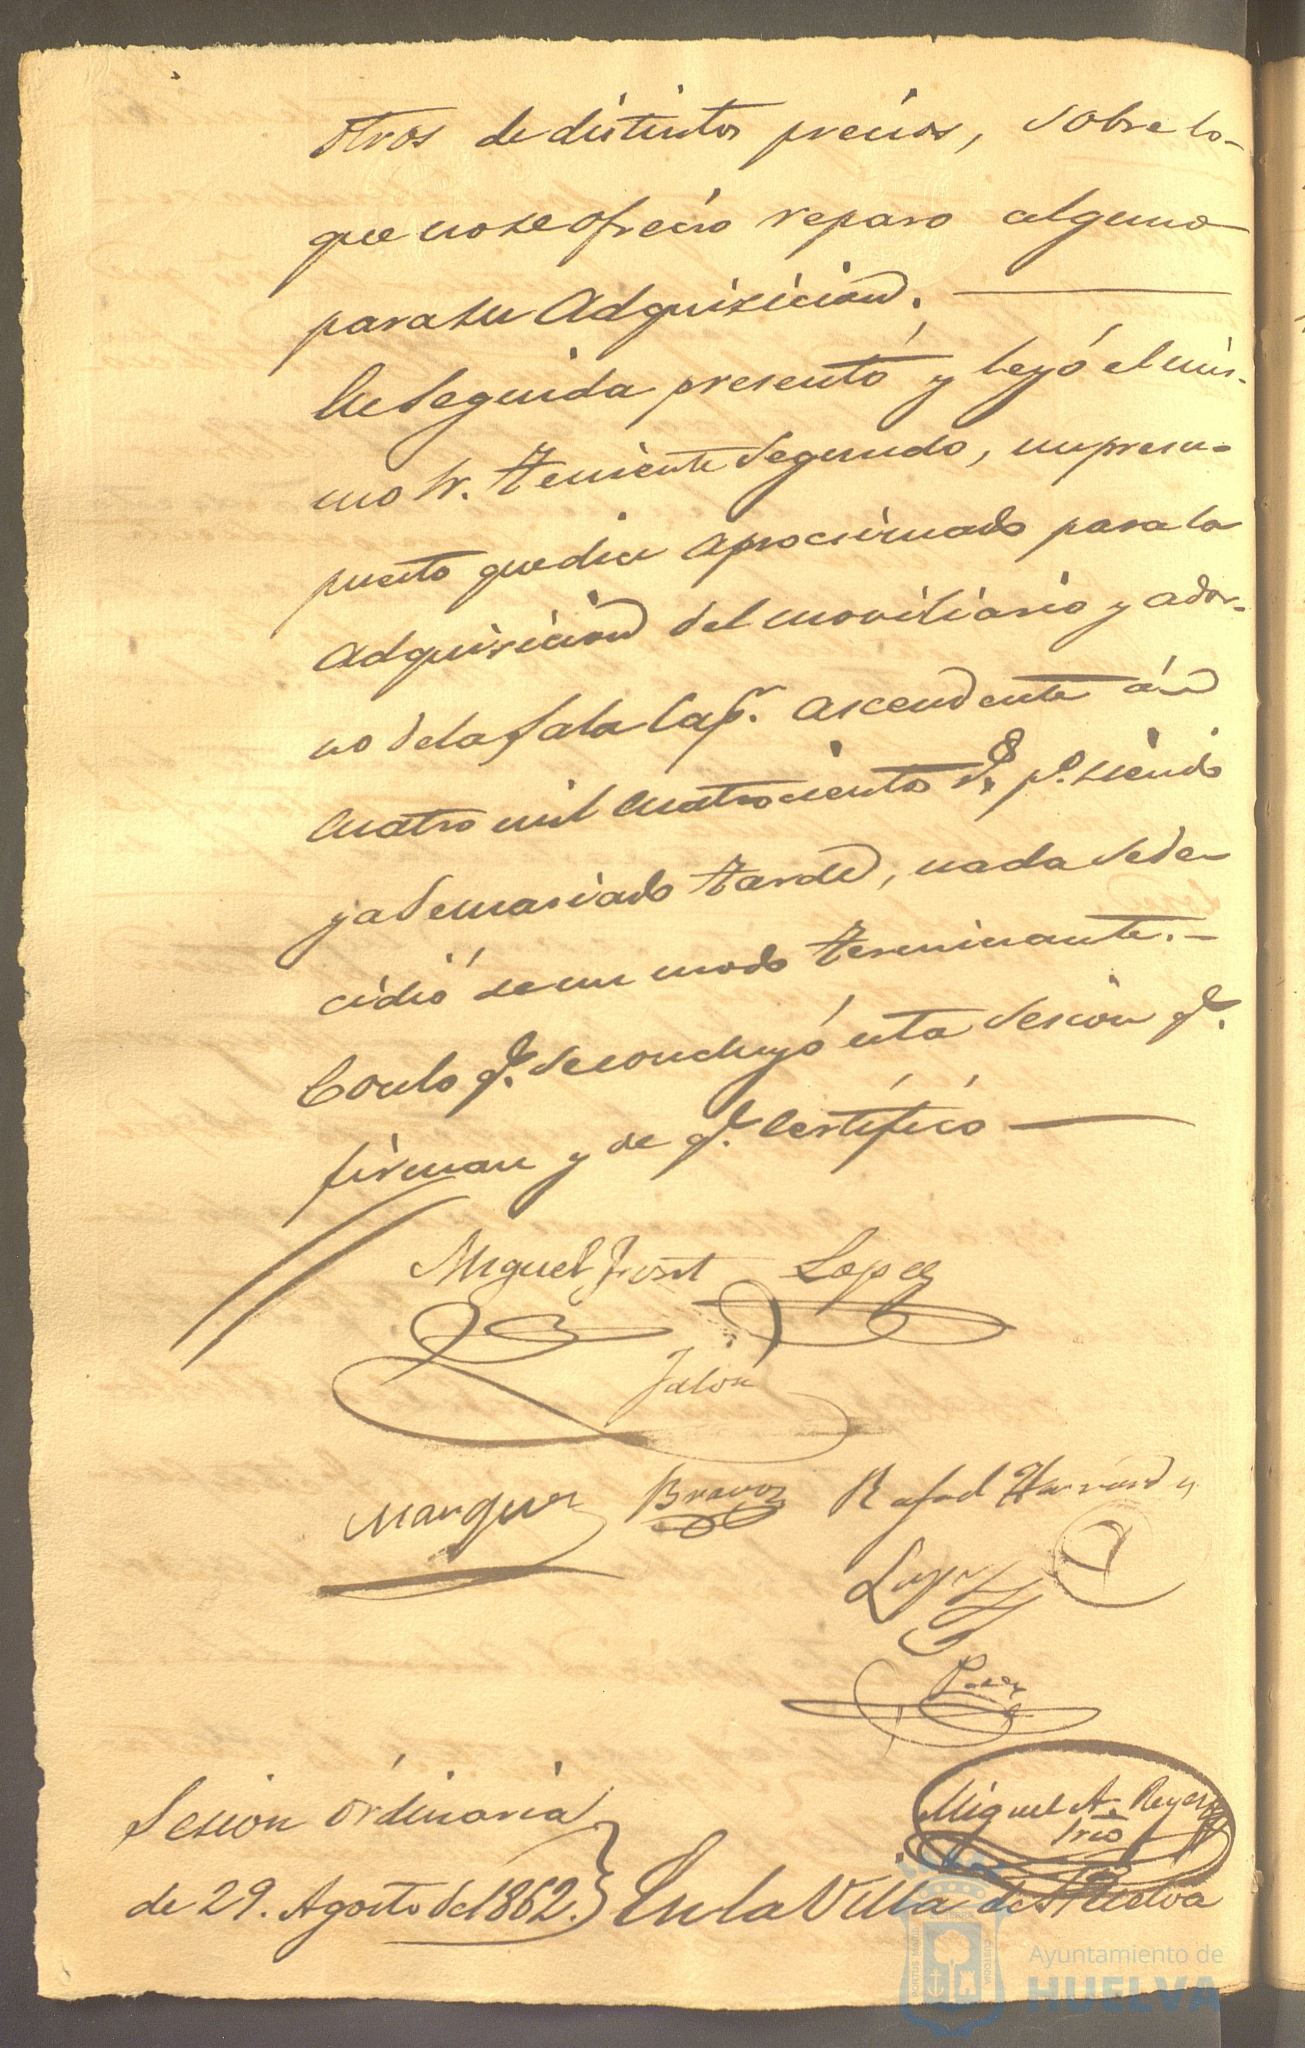 otros de distintos precios, sobre lo-
que no se ofrecio reparo alguno
para su Adquisicion.
En seguida presentó y leyó el mis-
mo Sr. Teniente Segundo, un presu-
puesto que dice aprocsimado para la
Adquisicion del moviliario y ador-
no de la Sala Cap.r ascendente á
cuatro mil cuatrocientos r.s p.o siendo
ya demasiado tarde, nada se de-
cidió de un modo terminante.-
Con lo q.e se concluyó esta sesion q.e
firman y de q.e Certifíco
Miguel Lopez
Jalon
Marquez Bravo Rafael Hernandez
Lopez
Miguel A. Reyes
Srio
Sesion Ordinaria
de 29. Agosto de 1862. En la Villa de Huelva
Ayuntamiento de
HUELVA